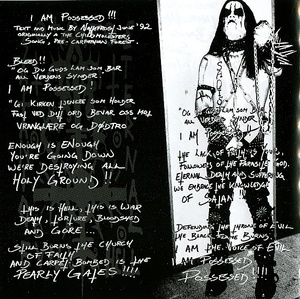 I AM POSSESSED !!!
TEXT AND MUSIC BY NATTEFROST JUNE '92
ORIGINALLY A THE CHILDMOLESTERS
SONG, PRE-CARPATHIAN FOREST.
"BLEED!!
"OG DU GUDS LAM SOM BAR
ALL VERDENS SYNDER"
I AM POSSESSED!
"GI KIRKEN TJENERE SOM HOLDER
FAST VED DITT ORD BEVAR OSS MOT
VRANGLÆRE OG DØDTRO
ENOUGH IS ENOUGH
YOU'RE GOING DOWN
WE'RE DESTROYING ALL
HOLY GROUND !!
THIS IS HELL, THIS IS WAR
DEATH, TORTURE, BLOODSHED
AND GORE...
STILL BURNS THE CHURCH
OF FAITH
AND CARPET BOMBED IS THE
PEARLY GATES !!!!
"OG GUDS LAM SOM BAR
ALL VERDENS
SYNDER"
I AM POSSESSED !
THE LACK OF FAITH IS YOURS
FOLLOWERS OF THE PARASITE GOD.
ETERNAL DEATH AND SUFFERING
WE EMBRACE THE KNOWLEDGE
OF SATAN !!
DEFENDING THE THRONE OF EVIL
THE BLACK FLAME BURNS
I AM THE VOICE OF EVIL
I AM POSSESSED
POSSESSED !!!!